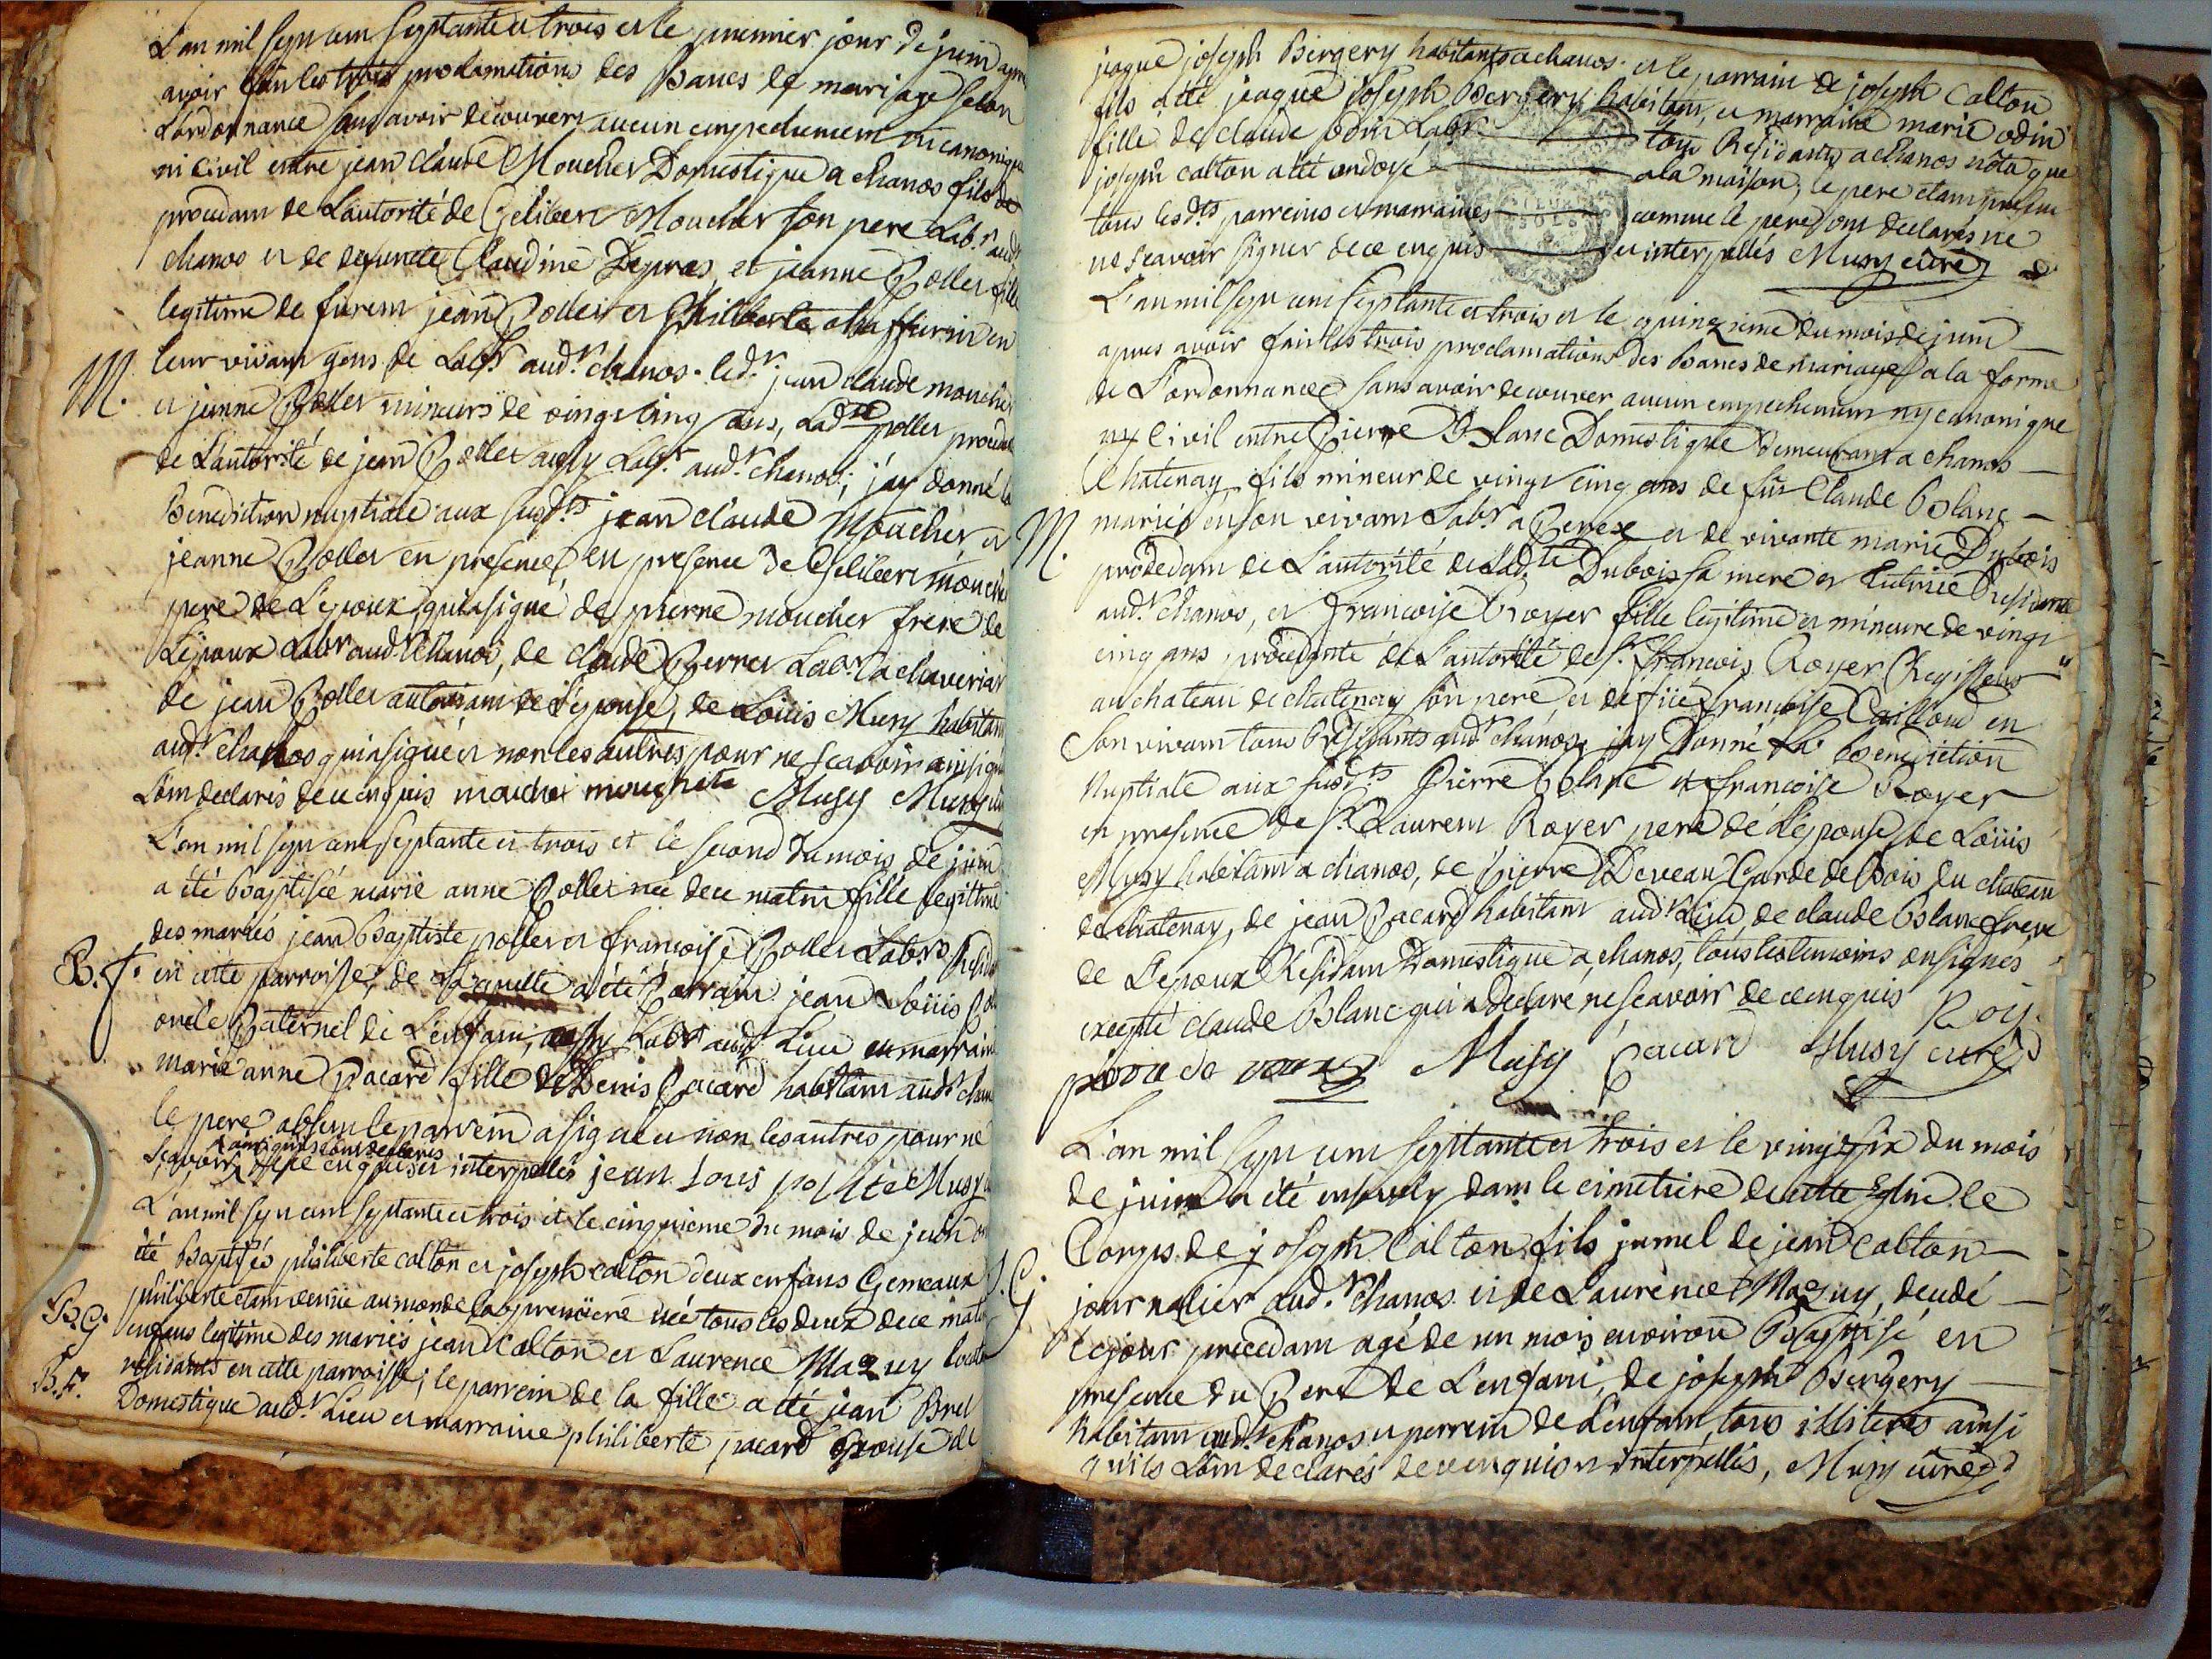 L'an mil sept cent septante et trois et le premier jour de juin apres
avoir fait les trois proclamations des Bancs de mariage selon
L'ordonnance sans avoir decouvert aucun empechement ni canonique
ni Civil entre jean claude Moucher Domestique a chanos fils de
procedant de L'autorité de Gelibert Moucher son pere Lab.r aud.t
chanos et de defuncte Claudine Depras, et jeanne Pollet fille
legitime de furent jean Pollet et Philiberte chaffurin en
M. leur vivant gens de Lab.r aud.t chanos. led.t jean claude moucher
et jeanne Pollet mineurs de vingt cinq ans, Lad.te pollet procedant
de L'autorité de jean Pollet aussy Lab.r aud.t chanos; j'ay donné la
Benediction nuptiale aux susd.ts jean claude Moucher et
jeanne Pollet en presence en presence de Gelibert moucher
pere de L'epoux qui a signé de pierre moucher frere de
L'epoux Lab.r aud.t Chanos, de claude Perret Lab.r a chaveriat
de jean Pollet autorisant de L'epouse, de Loüis Musy habitant
aud.t chanos qui a signé et non les autres pour ne scavoir ainsi qu'ils
L'ont declarés de ce enquis mouchet mouchete Musy Musy curé
L'an mil sept cent septante et trois et le second du mois de juin
a été Baptisée marie anne Pollet née de ce matin fille legittime
des mariés jean Baptiste pollet et francoise Pollet Lab.rs Residants
B.f. en cette parroisse, de Laquelle a été Parrain jean Loüis Pollet
oncle Paternel de L'enfant, aussy Lab.r aud.t Lieu et marraine
marie anne Pacard fille de Denis Pacard habitant aud.t chanos
le pere absent le parrein a signé et non les autres pour ne
ainsi quils L'ont declarés
scavoir de ce enquis et interpellés jean Louis pollite Musy c
L'an mil sept cent septante et trois et le cinquieme du mois de juin ont
été Baptisés philiberte calton et joseph calton deux enfans Gemeaux
philiberte etant venüe au monde la premiere née tous les deux de ce matin
B.G. enfans legitime des mariés jean Calton et Laurence Mazuy
residants en cette parroisse; le parrein de la fille a été jean Bret
B.F. Domestique aud.t Lieu et marraine philiberte pacard Epouse de
jaque joseph Bergery habitants a chanos. et le parrain de joseph Calton
fils a été jeaque joseph Bergery habitant, et marraine marie odin
fille de claude odin Lab.r tous Residants a chanos nota que
joseph calton a été ondoyé a la maison, le pere etant present
tous lesd.ts parreins et marraines comme le pere ont declarés ne
ne scavoir signer de ce enquis et interpellés Musy curé
L'an mil sept cent septante et trois et le quinzieme du mois de juin
apres avoir fait les trois proclamations des Bancs de mariage a la forme
de L'ordonnance sans avoir decouvert aucun empechement ny canonique
ny Civil entre Pierre Blanc Domestique demeurant a chanos
Chatenay fils mineur de vingt cinq ans de fût Claude Blanc
M. mariés en son vivant Lab.r a Perex et de vivante marie Dubois
procedant de L'autorité de lad.te Dubois sa mere et tutrice Residante
aud.t chanos, et francoise Royer fille legitime et mineure de vingt
cinq ans procedante de L'autorité de s.r francois Royer Regisseur
au chateau de chatenay son pere et de füe francoise Caillond en
son vivant tous Residants aud.t chanos; j'ay Donné La Benediction
Nuptiale aux susd.ts Pierre Blanc et francoise Royer
en presence de s.r Laurent Royer pere de L'epouse, de Loüis
Musy habitant a chanos, de Pierre Deveau Garde de Bois du chateau
de chatenay, de jean Pacard habitant aud.t Lieu, de claude Blanc frere
de L'epoux Residant Domestique a chanos, tous les temoins on signés
excepté claude Blanc qui a Declaré ne scavoir de ce enquis Roy.
Musy Pacard Musy curé
L'an mil sept cent septante et trois et le vingt six du mois
de juin a été ensevely dans le cimetiere de cette Eglise le
Corps de joseph Calton, fils jumel de jean Calton
S.G. journalier aud.t Chanos et de Laurence Mazuy, decedé
le jour precedant agé de un mois environ Baptisé en
presence du Pere de L'enfant, de joseph Bergery
habitant aud.t chanos et perrein de L'enfant, tous illiterés ainsi
qu'ils L'ont declarés de ce enquis et interpellés, Musy curé